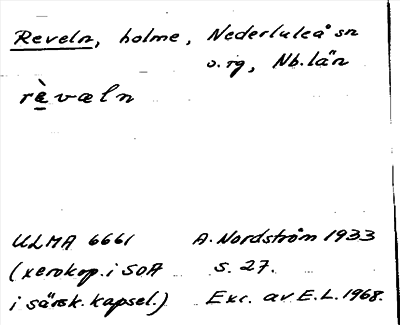 Reveln, holme, Nederluleå sn
o. rg, Nb. län
rὲvæln
ULMA 6661 A. Nordström 1933
(xerokop. i SOA s. 27.
i särsk. kapsel.) Exc. av E.L. 1968.